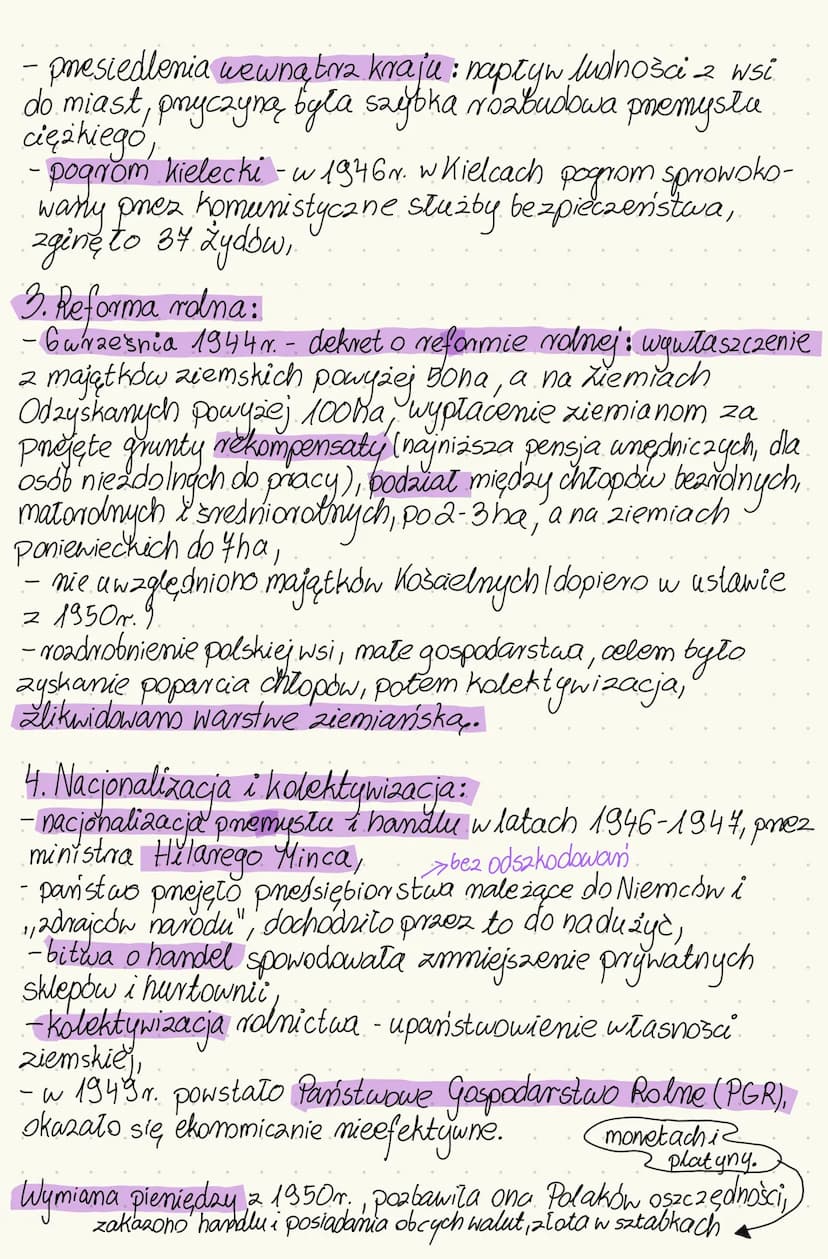 - przesiedlenia wewnątrz kraju: napływ ludności z wsi
do miast, przyczyną była szybka rozbudowa przemysłu
ciężkiego,
- pogrom kielecki - w 1946r. w Kielcach pogrom sprowoko-
wany przez komunistyczne służby bezpieczeństwa,
zginęło 37 Żydów,
3. Reforma rolna:
- 6 września 1944r. - dekret o reformie rolnej: wywłaszczenie
z majątków ziemskich powyżej 50ha, a na Ziemiach
Odzyskanych powyżej 100ha, wypłacenie ziemianom za
przejęte grunty rekompensaty (najniższa pensja urzędniczych, dla
osób niezdolnych do pracy), podział między chłopów bezrolnych,
małorolnych i średniorolnych, po 2-3 ha, a na ziemiach
poniewieckich do 7ha,
- nie uwzględniono majątków Kościelnych (dopiero w ustawie
z 1950r.)
- rozdrobnienie polskiej wsi, małe gospodarstwa, celem było
zyskanie poparcia chłopów, potem kolektywizacja,
zlikwidowano warstwę ziemiańską.
4. Nacjonalizacja i kolektywizacja:
- nacjonalizacja przemysłu i handlu w latach 1946-1947, przez
ministra Hilarego Minca,
→ bez odszkodowań
- państwo przejęło przedsiębiorstwa należące do Niemców i
"zdrajców narodu", dochodziło przez to do nadużyć,
- bitwa o handel spowodowała zmniejszenie prywatnych
sklepów i hurtownii,
- kolektywizacja rolnictwa - upaństwowienie własności
ziemskiej,
- w 1949r. powstało Państwowe Gospodarstwo Rolne (PGR),
okazało się ekonomicznie nieefektywne.
Wymiana pieniędzy z 1950r., pozbawiła ona Polaków oszczędności,
zakazono handlu i posiadania obcych walut, złota w sztabkach
monetach i
platyny.